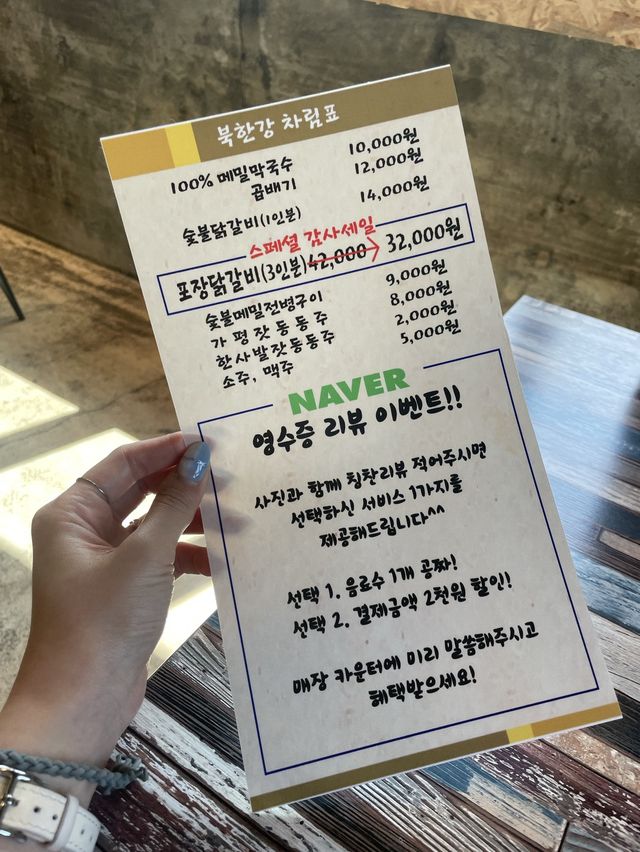 북한강 차림표
100% 메밀막국수 10,000원
곱배기 12,000원
숯불닭갈비(1인분) 14,000원
스페셜 감사세일
포장닭갈비(3인분) 42,000 32,000원
숯불메밀전병구이 9,000원
가평잣동동주 8,000원
한사발잣동동주 2,000원
소주, 맥주 5,000원
NAVER
영수증 리뷰 이벤트!!
사진과 함께 칭찬리뷰 적어주시면
선택하신 서비스 1가지를
제공해드립니다^^
선택 1. 음료수 1개 공짜!
선택 2. 결제금액 2천원 할인!
매장 카운터에 미리 말씀해주시고
혜택받으세요!